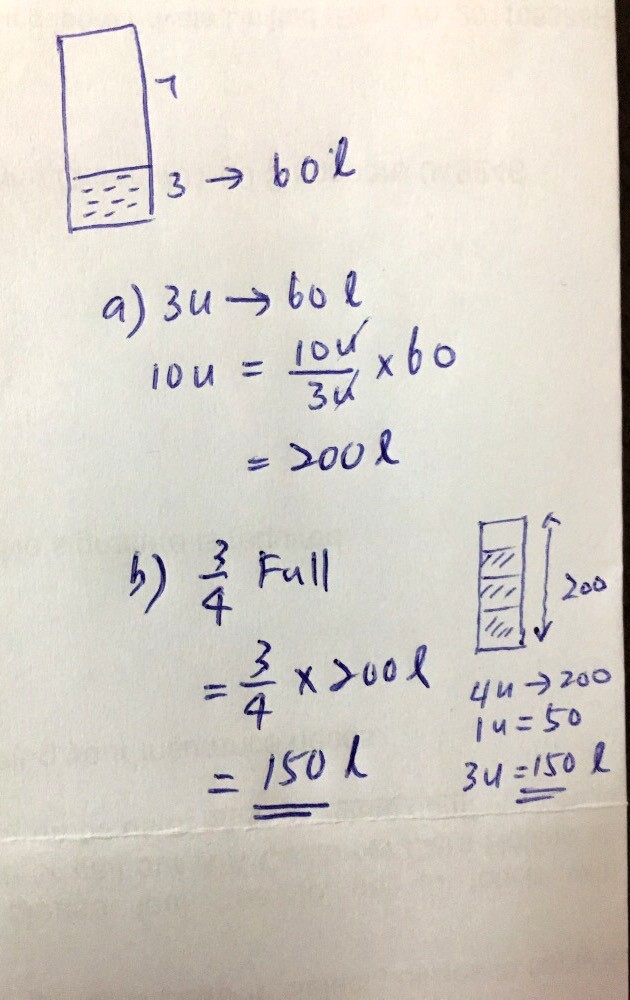 7
3 → 60 l
a) 3u → 60 l
10u = 10u/3u × 60
= 200 l
b) 3/4 Full
= 3/4 × 200 l
= 150 l
200
4u → 200
1u = 50
3u = 150 l